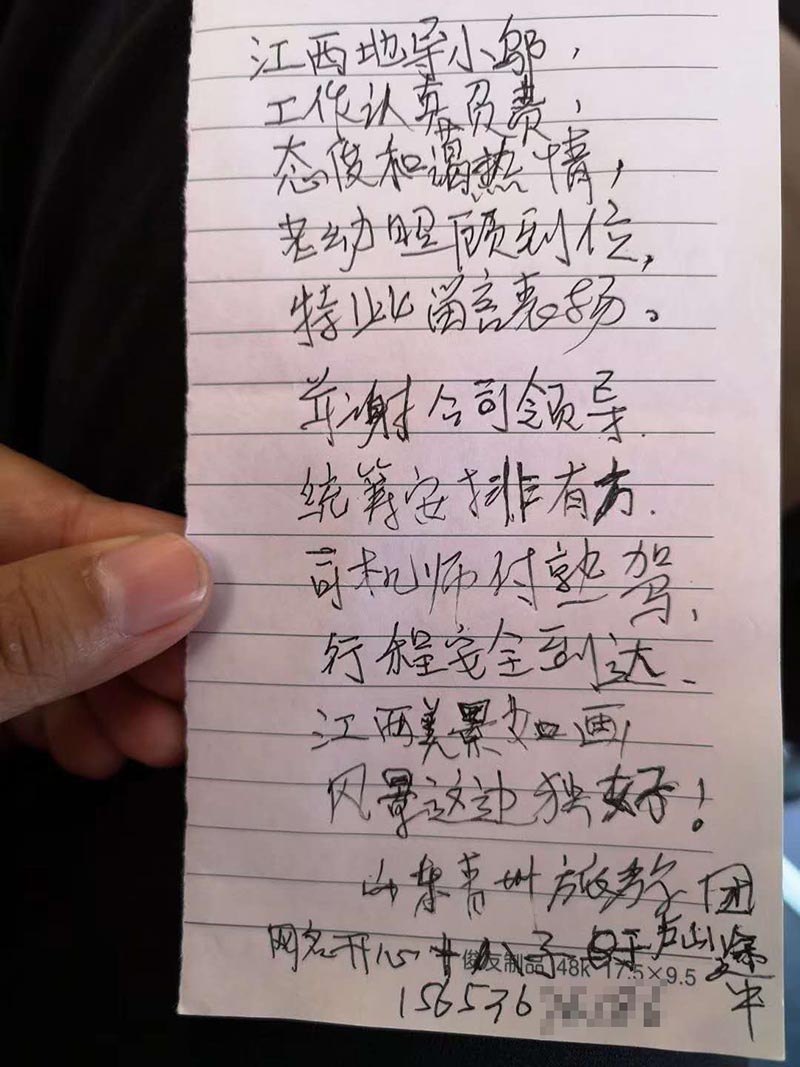 江西地导小邬，
工作认真负责，
态度和蔼热情，
老幼照顾到位，
特此留言表扬。
并谢公司领导
统筹安排有方.
司机师付熟驾，
行程安全到达.
江西美景如画，
风景这边独好！
山东青州旅教团
网名开心十八子 于庐山途中
俊友制品 48k 17.5×9.5
156536